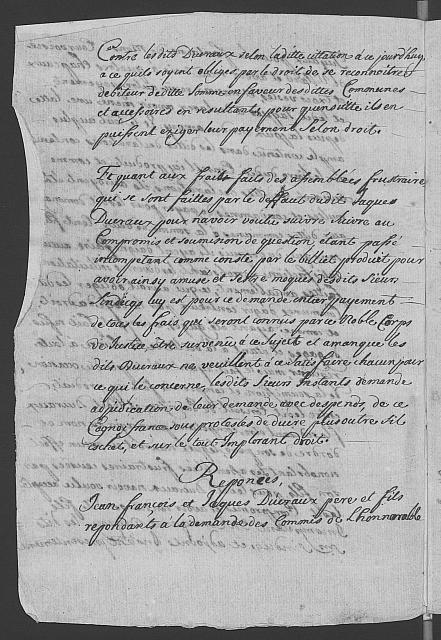 Contre lesdits Ducraux selon laditte citation a ce jourdhuy
a ce quils soyent obliges par le droit de se reconnoitre
debiteur deditte Somme en faveur desdittes Comunes
et accessoires en resultants pour quensuitte ils en
puissent exiger leur payement Selon droit.
Et quant aux frait faits des assemblees frustraire
qui se sont faittes par le deffaut dudit Jaques
Ducraux pour navoir voulu suivre
Compromis et soumission de question, etant passé
comme conste par le billet produit, pour
avoir ainsy amuse et setre moques desdits Sieurs
Sindicqs luy est pour ce demande entier payement
de tous les frais qui seront connus par ce Noble Corps
de Justice, etre survenu a ce Sujet et a manque les
dits Ducraux ne veuillent a ce Satisfaire, chacun pour
ce qui le concerne, lesdits Sieurs Instants demande
adjudication de leur demande avec despends, de ce
sous protestes de duire plus outre Sil
eschet, et sur le tout Implorant droit.
Reponces,
Jean francois et Jaques Ducraux pere et fils
repondants à la demande des Commis de Lhonnorable